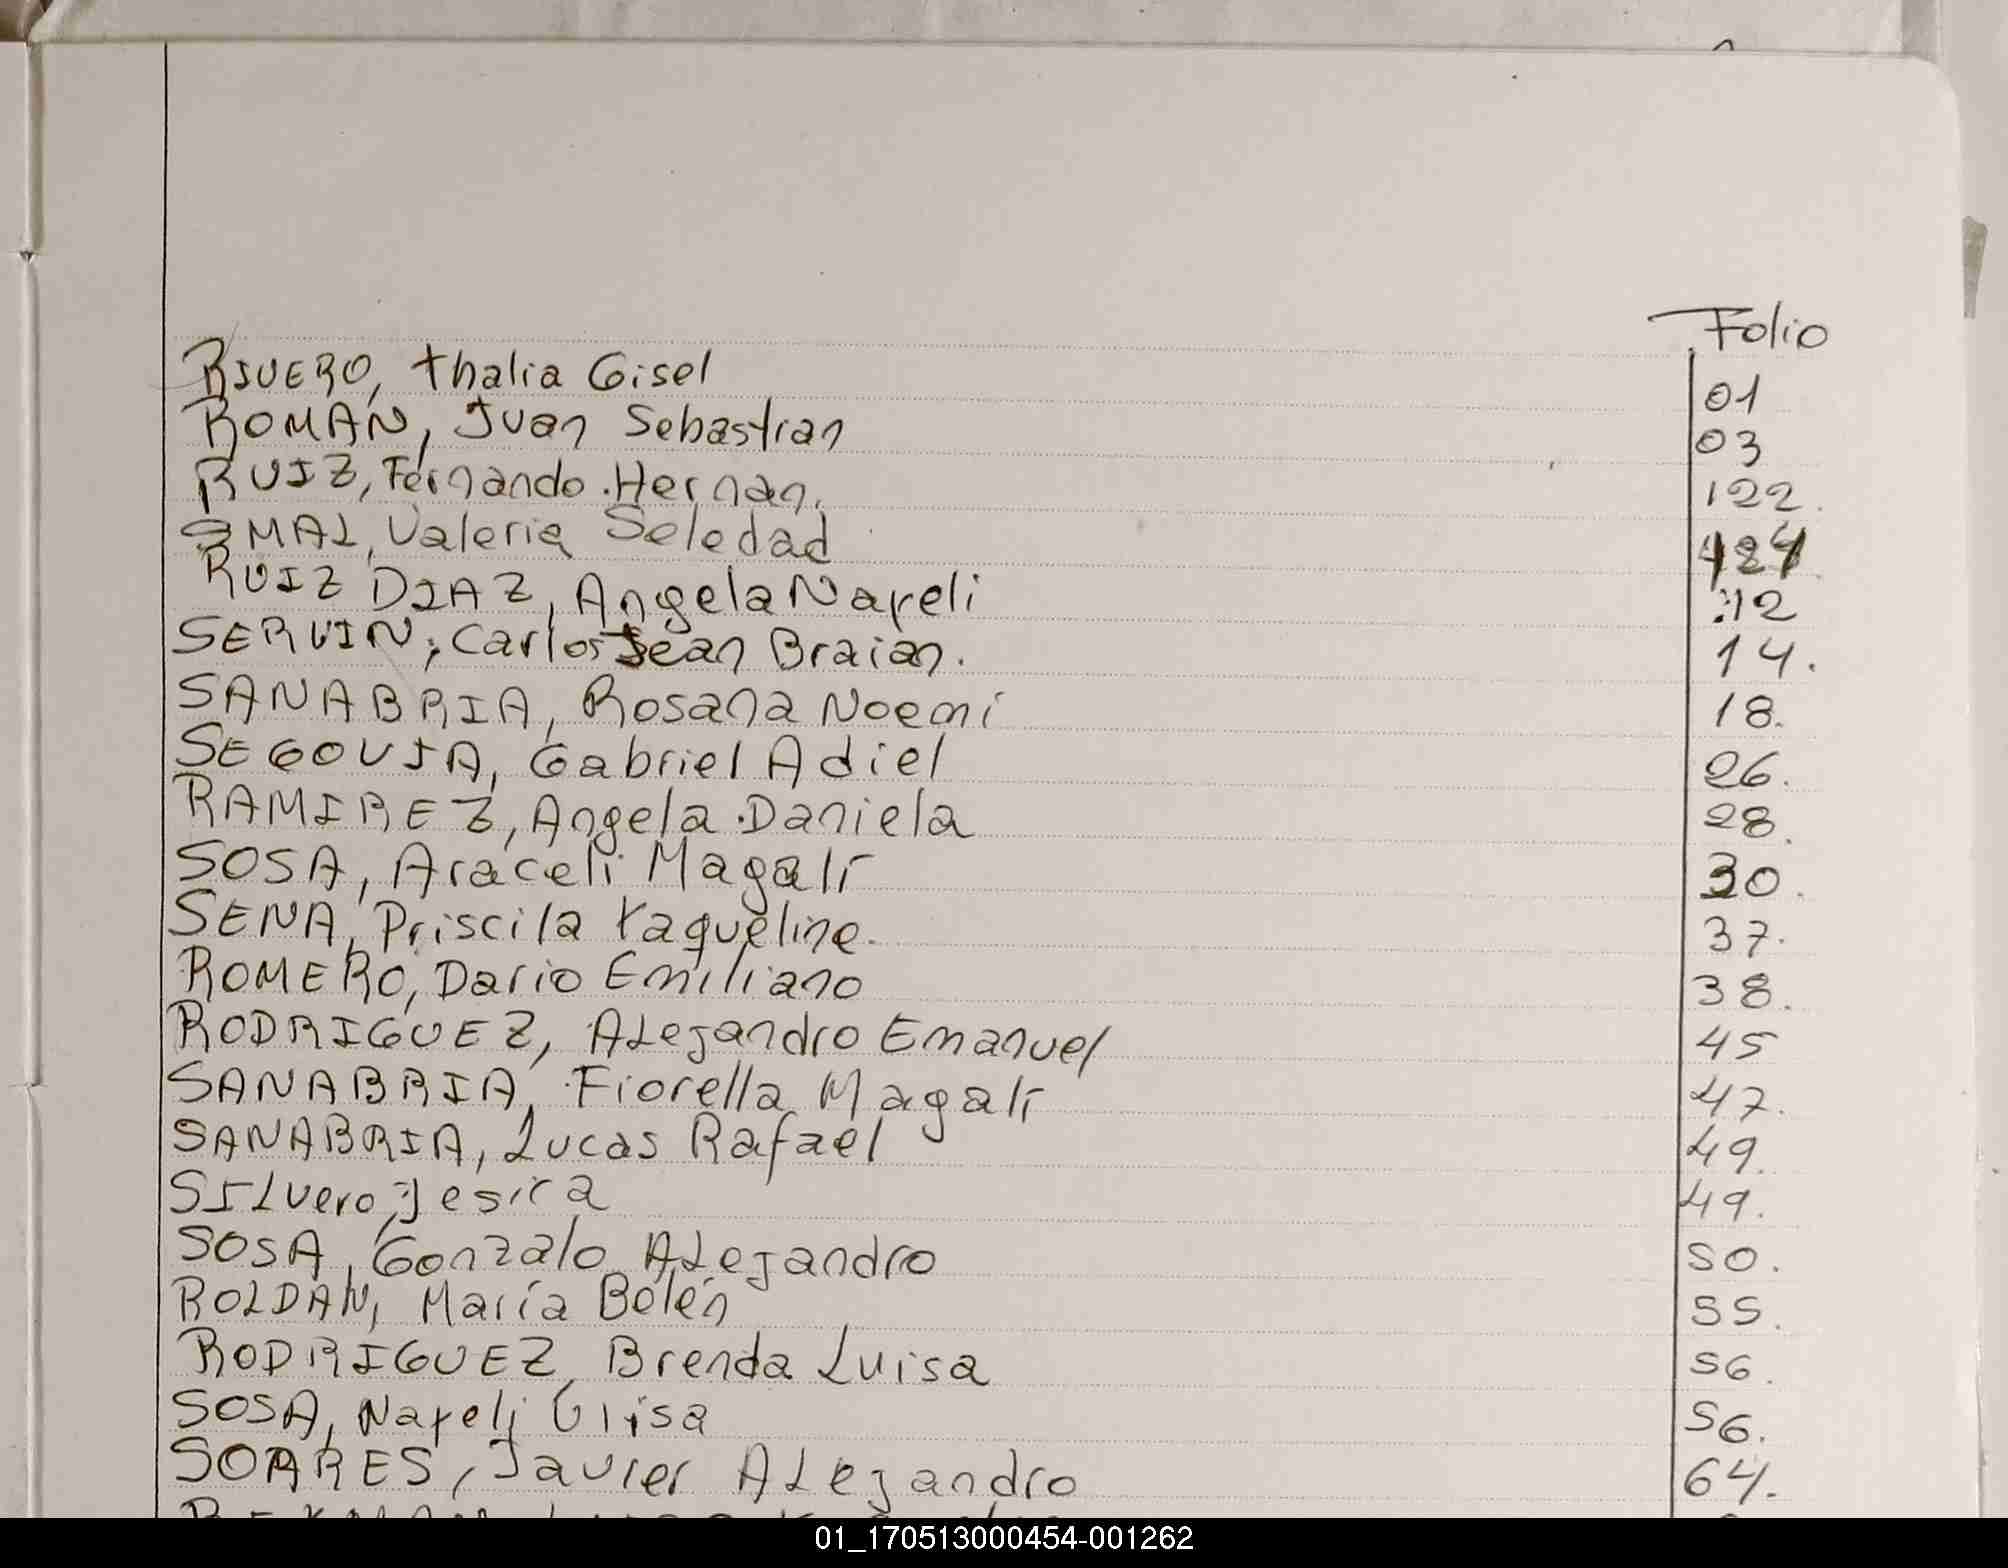 Folio
RIVERO, Thalia Gisel 01
ROMAN, Juan Sebastian 03
RUIZ, Fernando Hernan. 122.
SMAL, Valeria Soledad
RUIZ DIAZ, Angela Nayeli 12
SERVIN, Carlos Jean Braian. 14.
SANABRIA, Rosana Noemi 18.
SEGOVIA, Gabriel Adiel 26.
RAMIREZ, Angela Daniela 28.
SOSA, Araceli Magalí 30.
SENA, Priscila Yaqueline. 37.
ROMERO, Dario Emiliano 38.
RODRIGUEZ, ALejandro Emanuel 45
SANABRIA, Fiorella Magalí 47.
SANABRIA, Lucas Rafael 49.
SILvero, Jesica 49.
SOSA, Gonzalo ALejandro 50.
ROLDAN, María Belén 55.
RODRIGUEZ, Brenda Luisa 56.
SOSA, Nayeli 56.
SOARES, Javier ALejandro 64.
01_170513000454-001262